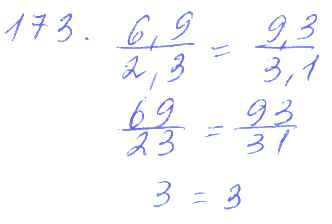 173. 6,9/2,3 = 9,3/3,1
69/23 = 93/31
3 = 3